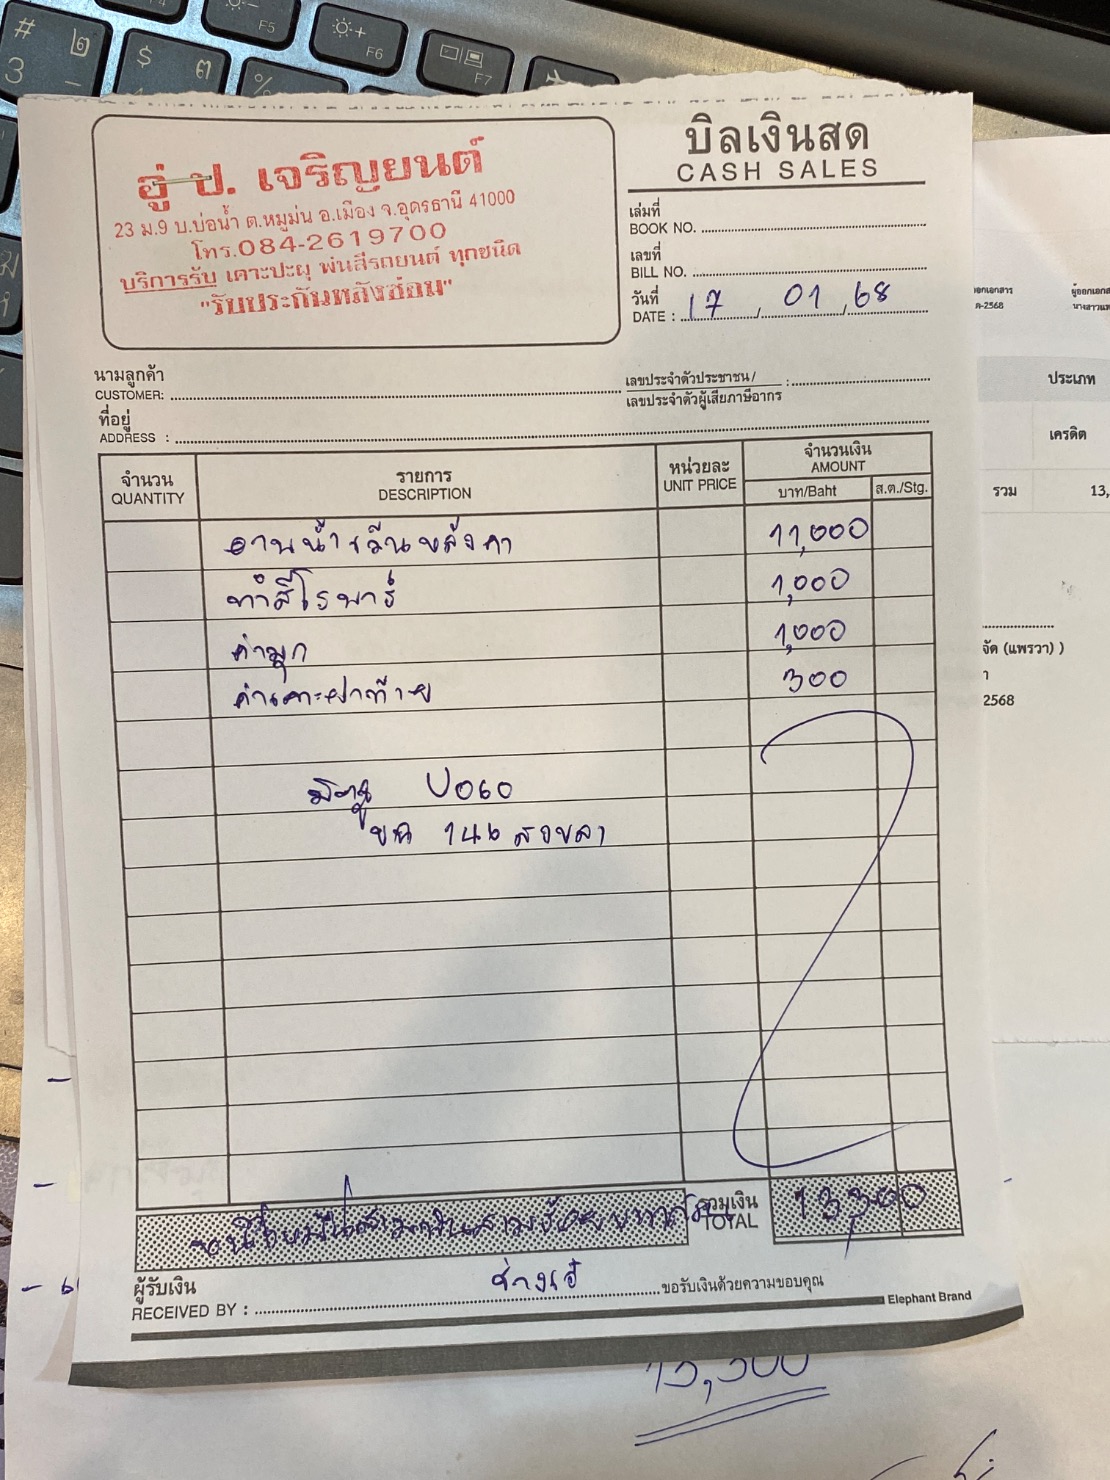 # ๒
3 _
$ ๓
%
F5
F6
F7
บิลเงินสด
CASH SALES
อู่ ป. เจริญยนต์
23 ม.9 บ.บ่อน้ำ ต.หมูม่น อ.เมือง จ.อุดรธานี 41000
โทร.084-2619700
บริการรับ เคาะปะผุ พ่นสีรถยนต์ ทุกชนิด
"รับประกันหลังซ่อม"
เล่มที่
BOOK NO.
เลขที่
BILL NO.
วันที่
DATE : 17 / 01 / 68
นามลูกค้า
CUSTOMER:
เลขประจำตัวประชาชน/
เลขประจำตัวผู้เสียภาษีอากร :
ที่อยู่
ADDRESS :
จำนวน รายการ หน่วยละ จำนวนเงิน
QUANTITY DESCRIPTION UNIT PRICE AMOUNT
บาท/Baht ส.ต./Stg.
หลังคา 11,000
ทำสี 1,000
ค่ามุก 1,000
ค่าเคาะฝาท้าย 300
146 สงขลา
รวมเงิน
TOTAL 13300
หนึ่งหมื่นสามพันสามร้อยบาทถ้วน
ผู้รับเงิน
RECEIVED BY : ช่างเอ๋ ขอรับเงินด้วยความขอบคุณ
Elephant Brand
13,300
-2568
ประเภท
เครดิต
รวม 13,
จัด (แพรวา) )
2568